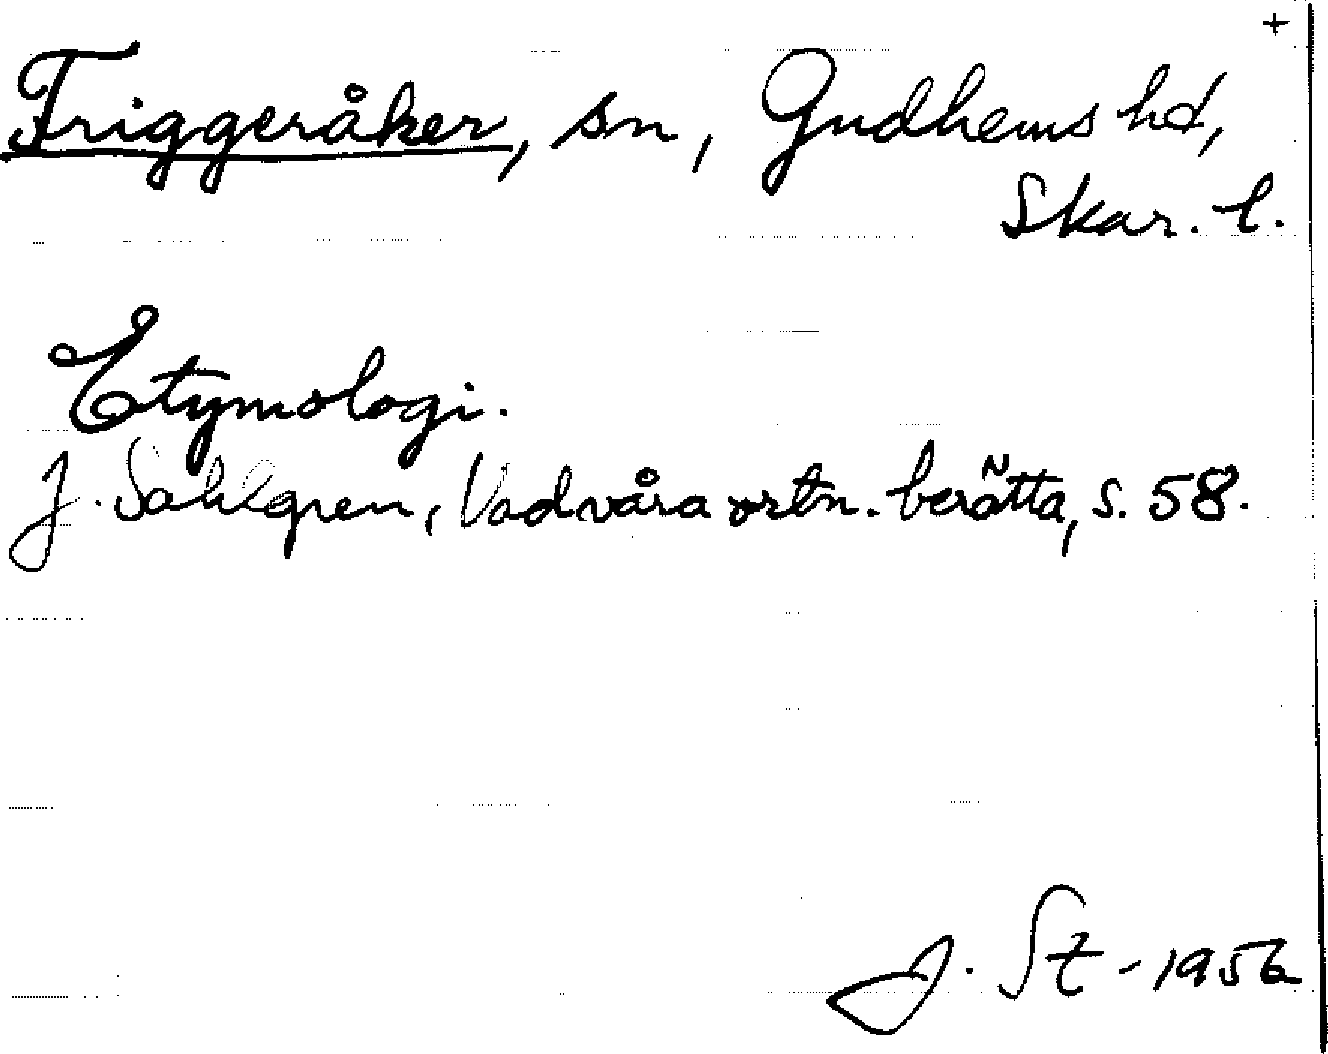 +
Friggeråker, sn, Gudhems hd,
Skar. l.
Etymologi.
J. Sahlgren, Vad våra ortn. berätta, s. 58.
J. St - 1956